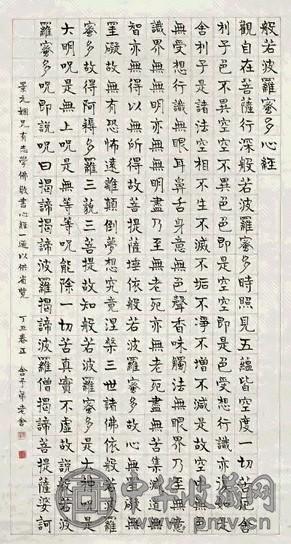 般若波羅蜜多心經
觀自在菩薩行深般若波羅蜜多時照見五蘊皆空度一切苦厄舍
利子色不異空空不異色色即是空空即是色受想行識亦復如是
舍利子是諸法空相不生不滅不垢不淨不增不減是故空中無色
無受想行識無眼耳鼻舌身意無色聲香味觸法無眼界乃至無意
識界無無明亦無無明盡乃至無老死亦無老死盡無苦集滅道無
智亦無得以無所得故菩提薩埵依般若波羅蜜多故心無罣礙無
罣礙故無有恐怖遠離顛倒夢想究竟涅槃三世諸佛依般若波羅
蜜多故得阿耨多羅三藐三菩提故知般若波羅蜜多是大神呪是
大明呪是無上呪是無等等呪能除一切苦真實不虛故說般若波
羅蜜多呪即說呪曰揭諦揭諦波羅揭諦波羅僧揭諦菩提薩婆訶
景光姻兄有志學佛敬書心經一通以供省覽 丁丑春正 舍予弟老舍
中华收藏网
www.pmv.cn